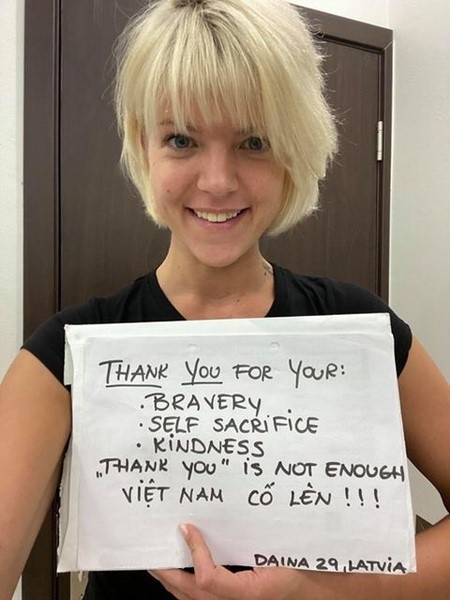 THANK YOU FOR YOUR:
· BRAVERY
· SELF SACRIFICE
· KINDNESS
„THANK YOU" is NOT ENOUGH
VIỆT NAM CỐ LÊN !!!
DAINA 29, LATVIA